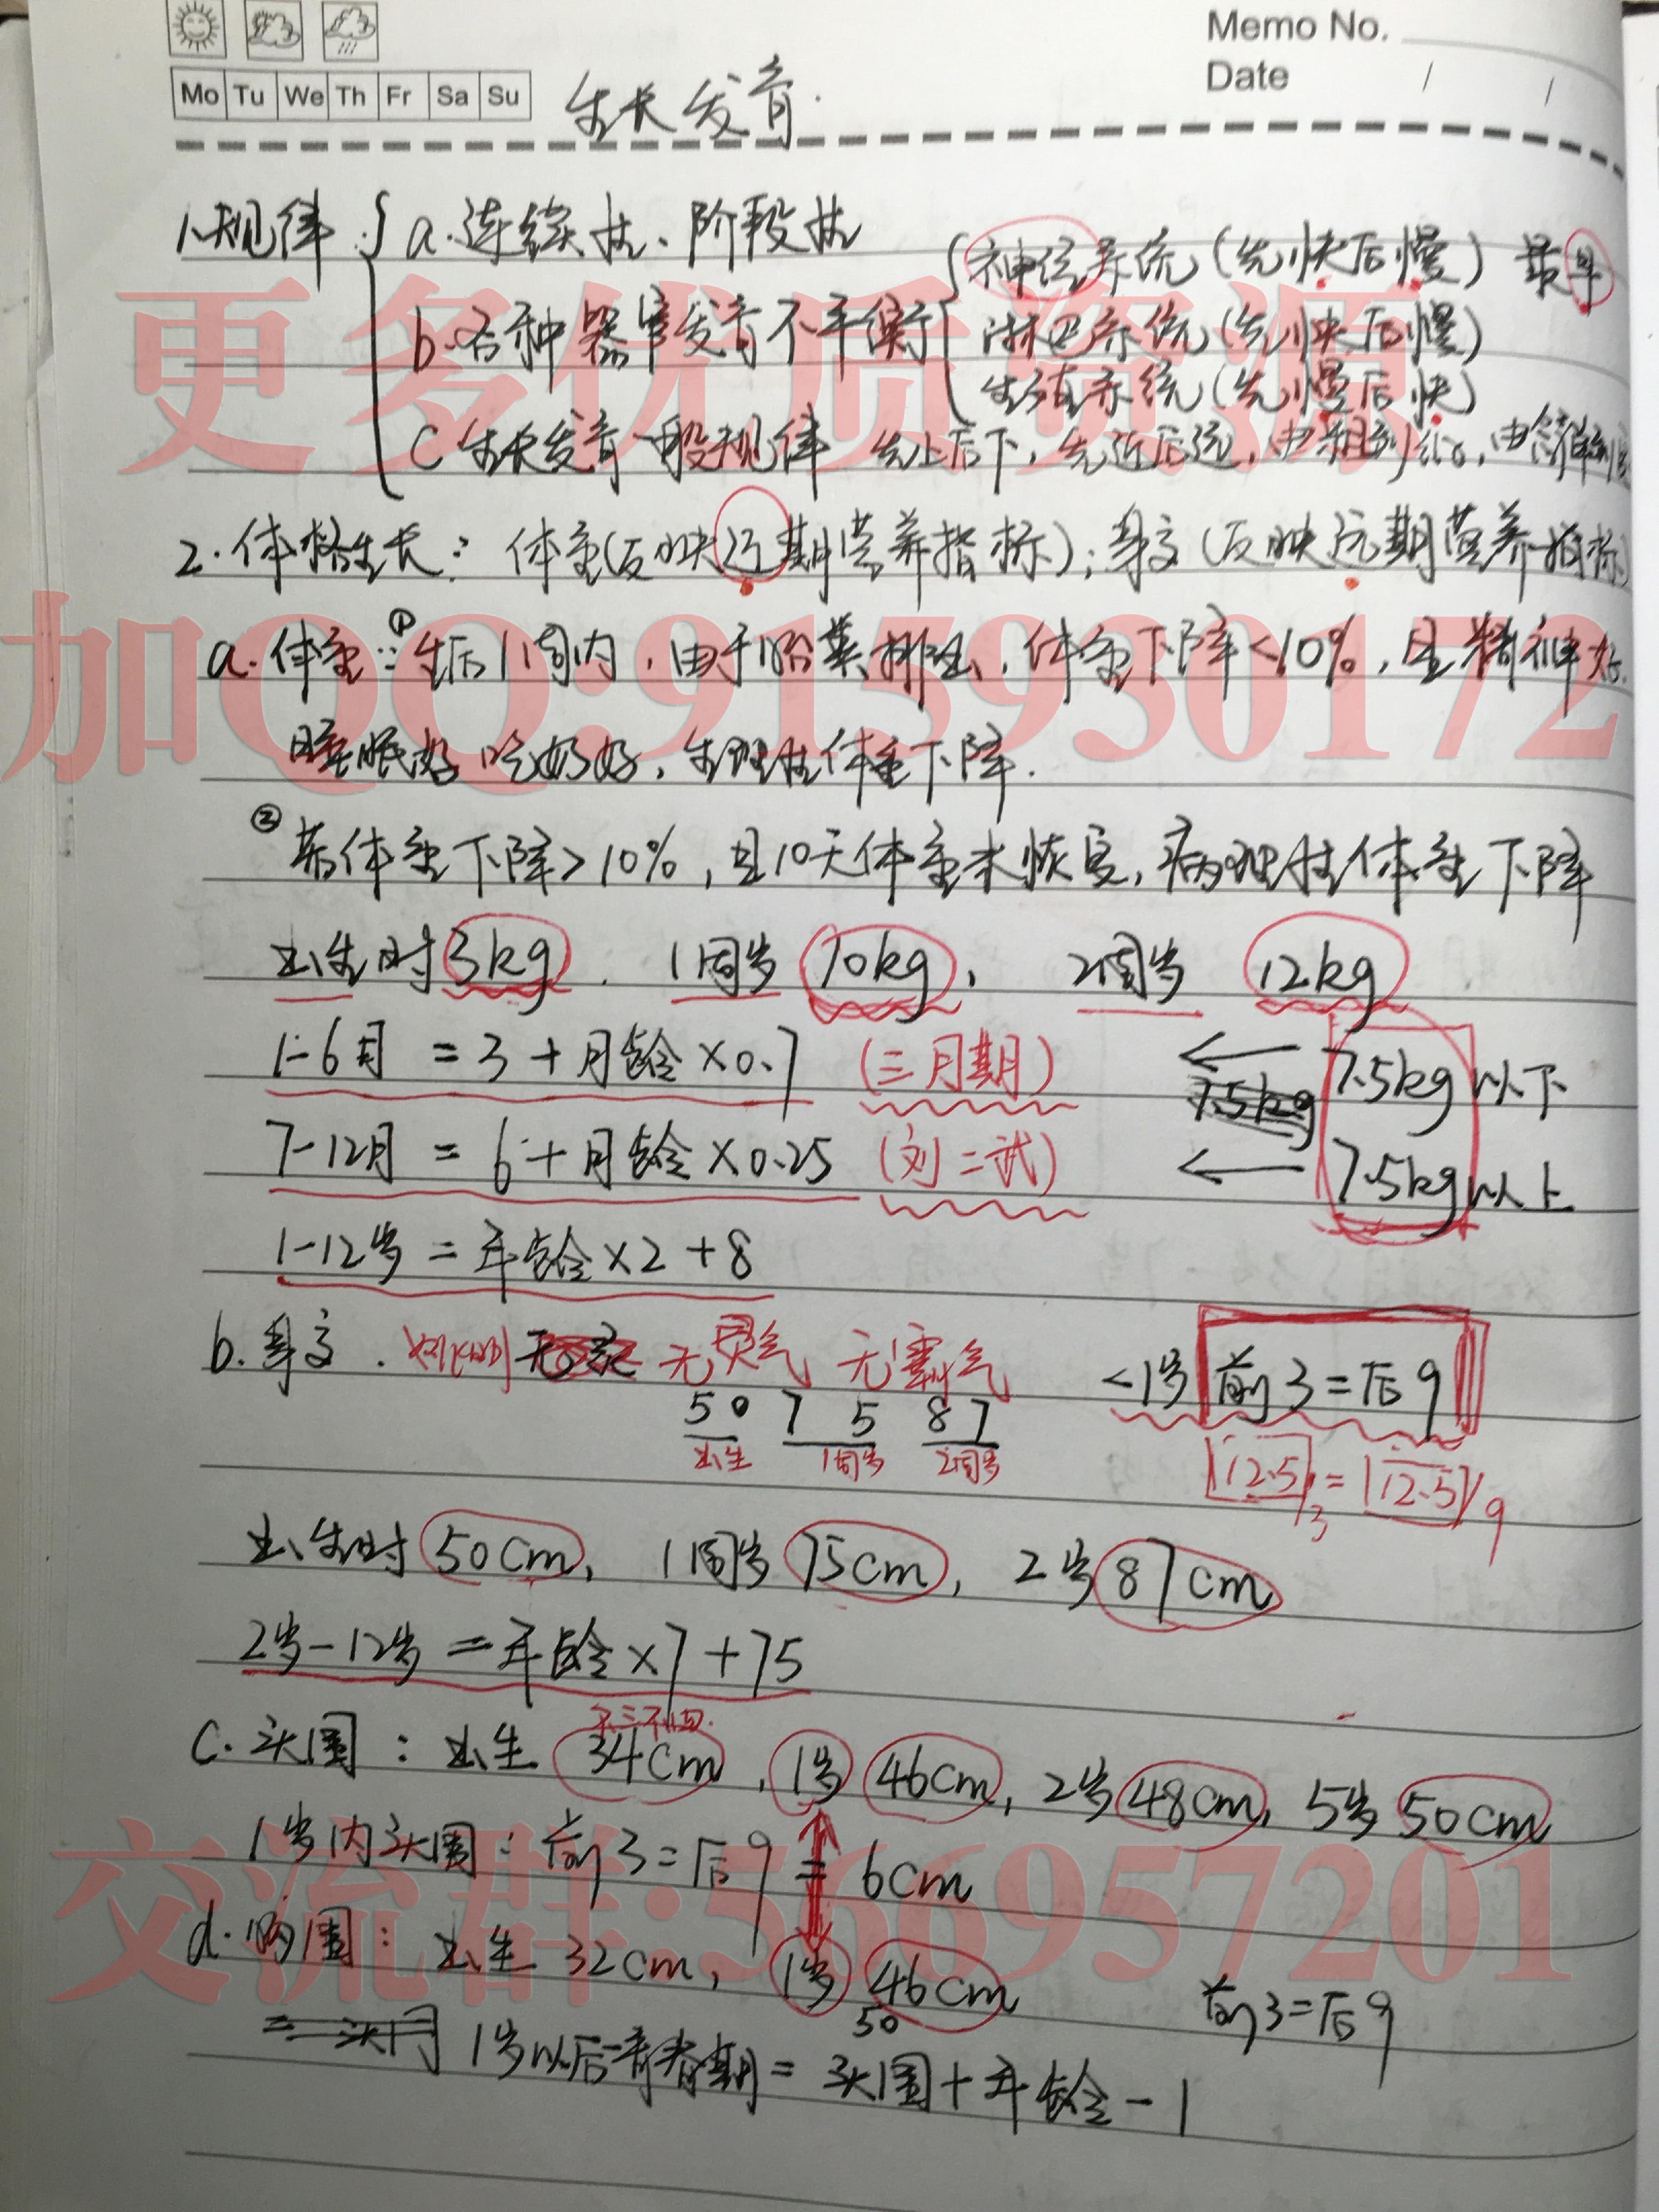 Memo No.
Date / /
Mo Tu We Th Fr Sa Su
生长发育.
1.规律: a.连续性、阶段性
b.各种器官发育不平衡
神经系统(先快后慢) 最早
淋巴系统(先快后慢)
生殖系统(先慢后快)
C 生长发育一般规律 先上后下,先近后远,由粗到细,由简单到
更多优质资源
2.体格生长: 体重(反映近期营养指标);身高(反映远期营养指标)
a.体重:①生后1周内,由于胎粪排出,体重下降<10%,且精神好.
加QQ:915930172
睡眠好 吃奶好,生理性体重下降.
② 若体重下降>10%,且10天体重未恢复,病理性体重下降
出生时3kg. 1周岁 10kg, 2周岁 12kg
1-6月 = 3+月龄×0.7 (三月期) ← 7.5kg以下
7.5kg
7-12月 = 6+月龄×0.25 (刘二武) ← 7.5kg以上
1-12岁 = 年龄×2+8
b.身高. 无灵气 无霸气 <1岁 前3=后9
50 7 5 87
出生 1周岁 2周岁 12.5/3 = 12.5/9
出生时50cm, 1周岁75cm, 2岁87cm
2岁-12岁 = 年龄×7+75
不三不四.
C.头围: 出生 34cm, 1岁 46cm, 2岁48cm, 5岁50cm
1岁内头围:前3=后9 = 6cm
交流群:566957201
d.胸围: 出生 32cm, 1岁 46cm 前3=后9
50
1岁以后-青春期=头围+年龄-1